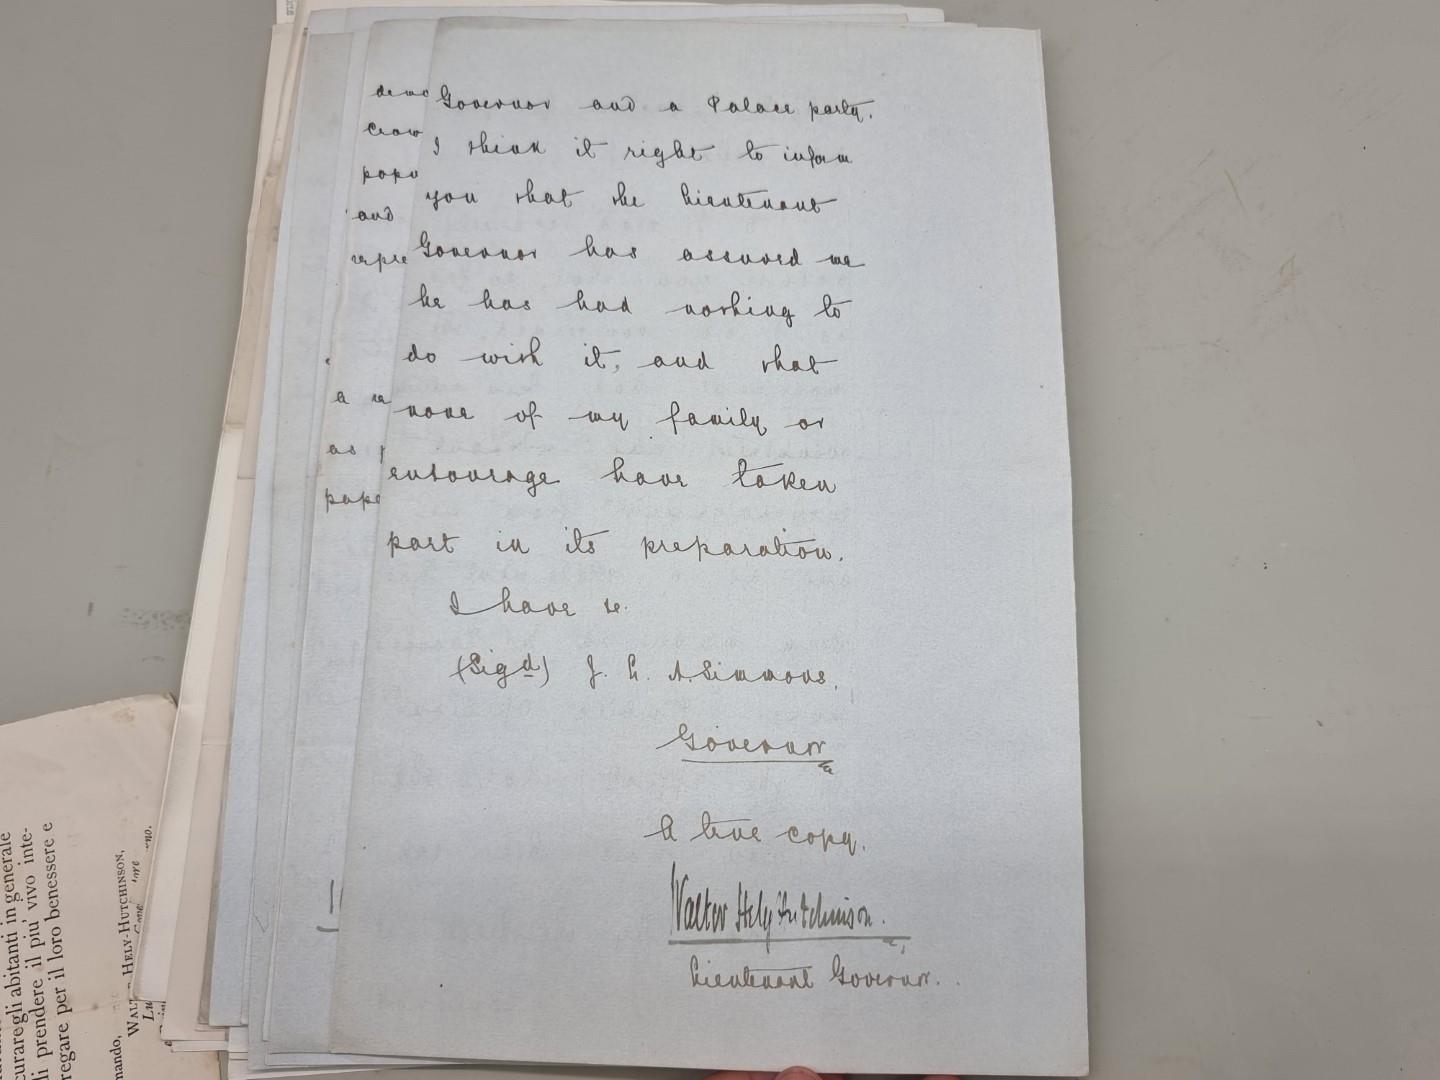 Governor and a Palace party.
I think it right to inform
you that the Lieutenant
Governor has assured me
he has had nothing to
do with it, and that
none of my family or
entourage have taken
part in its preparation.
I have &c.
(Sigd) J. L. A. Simmons.
Governor
A true copy.
Walter Hely Hutchinson.
Lieutenant Governor.
and
a
as
curare gli abitanti in generale
di prendere il piu' vivo inte-
regare per il loro benessere e
mando,
HELY-HUTCHINSON,